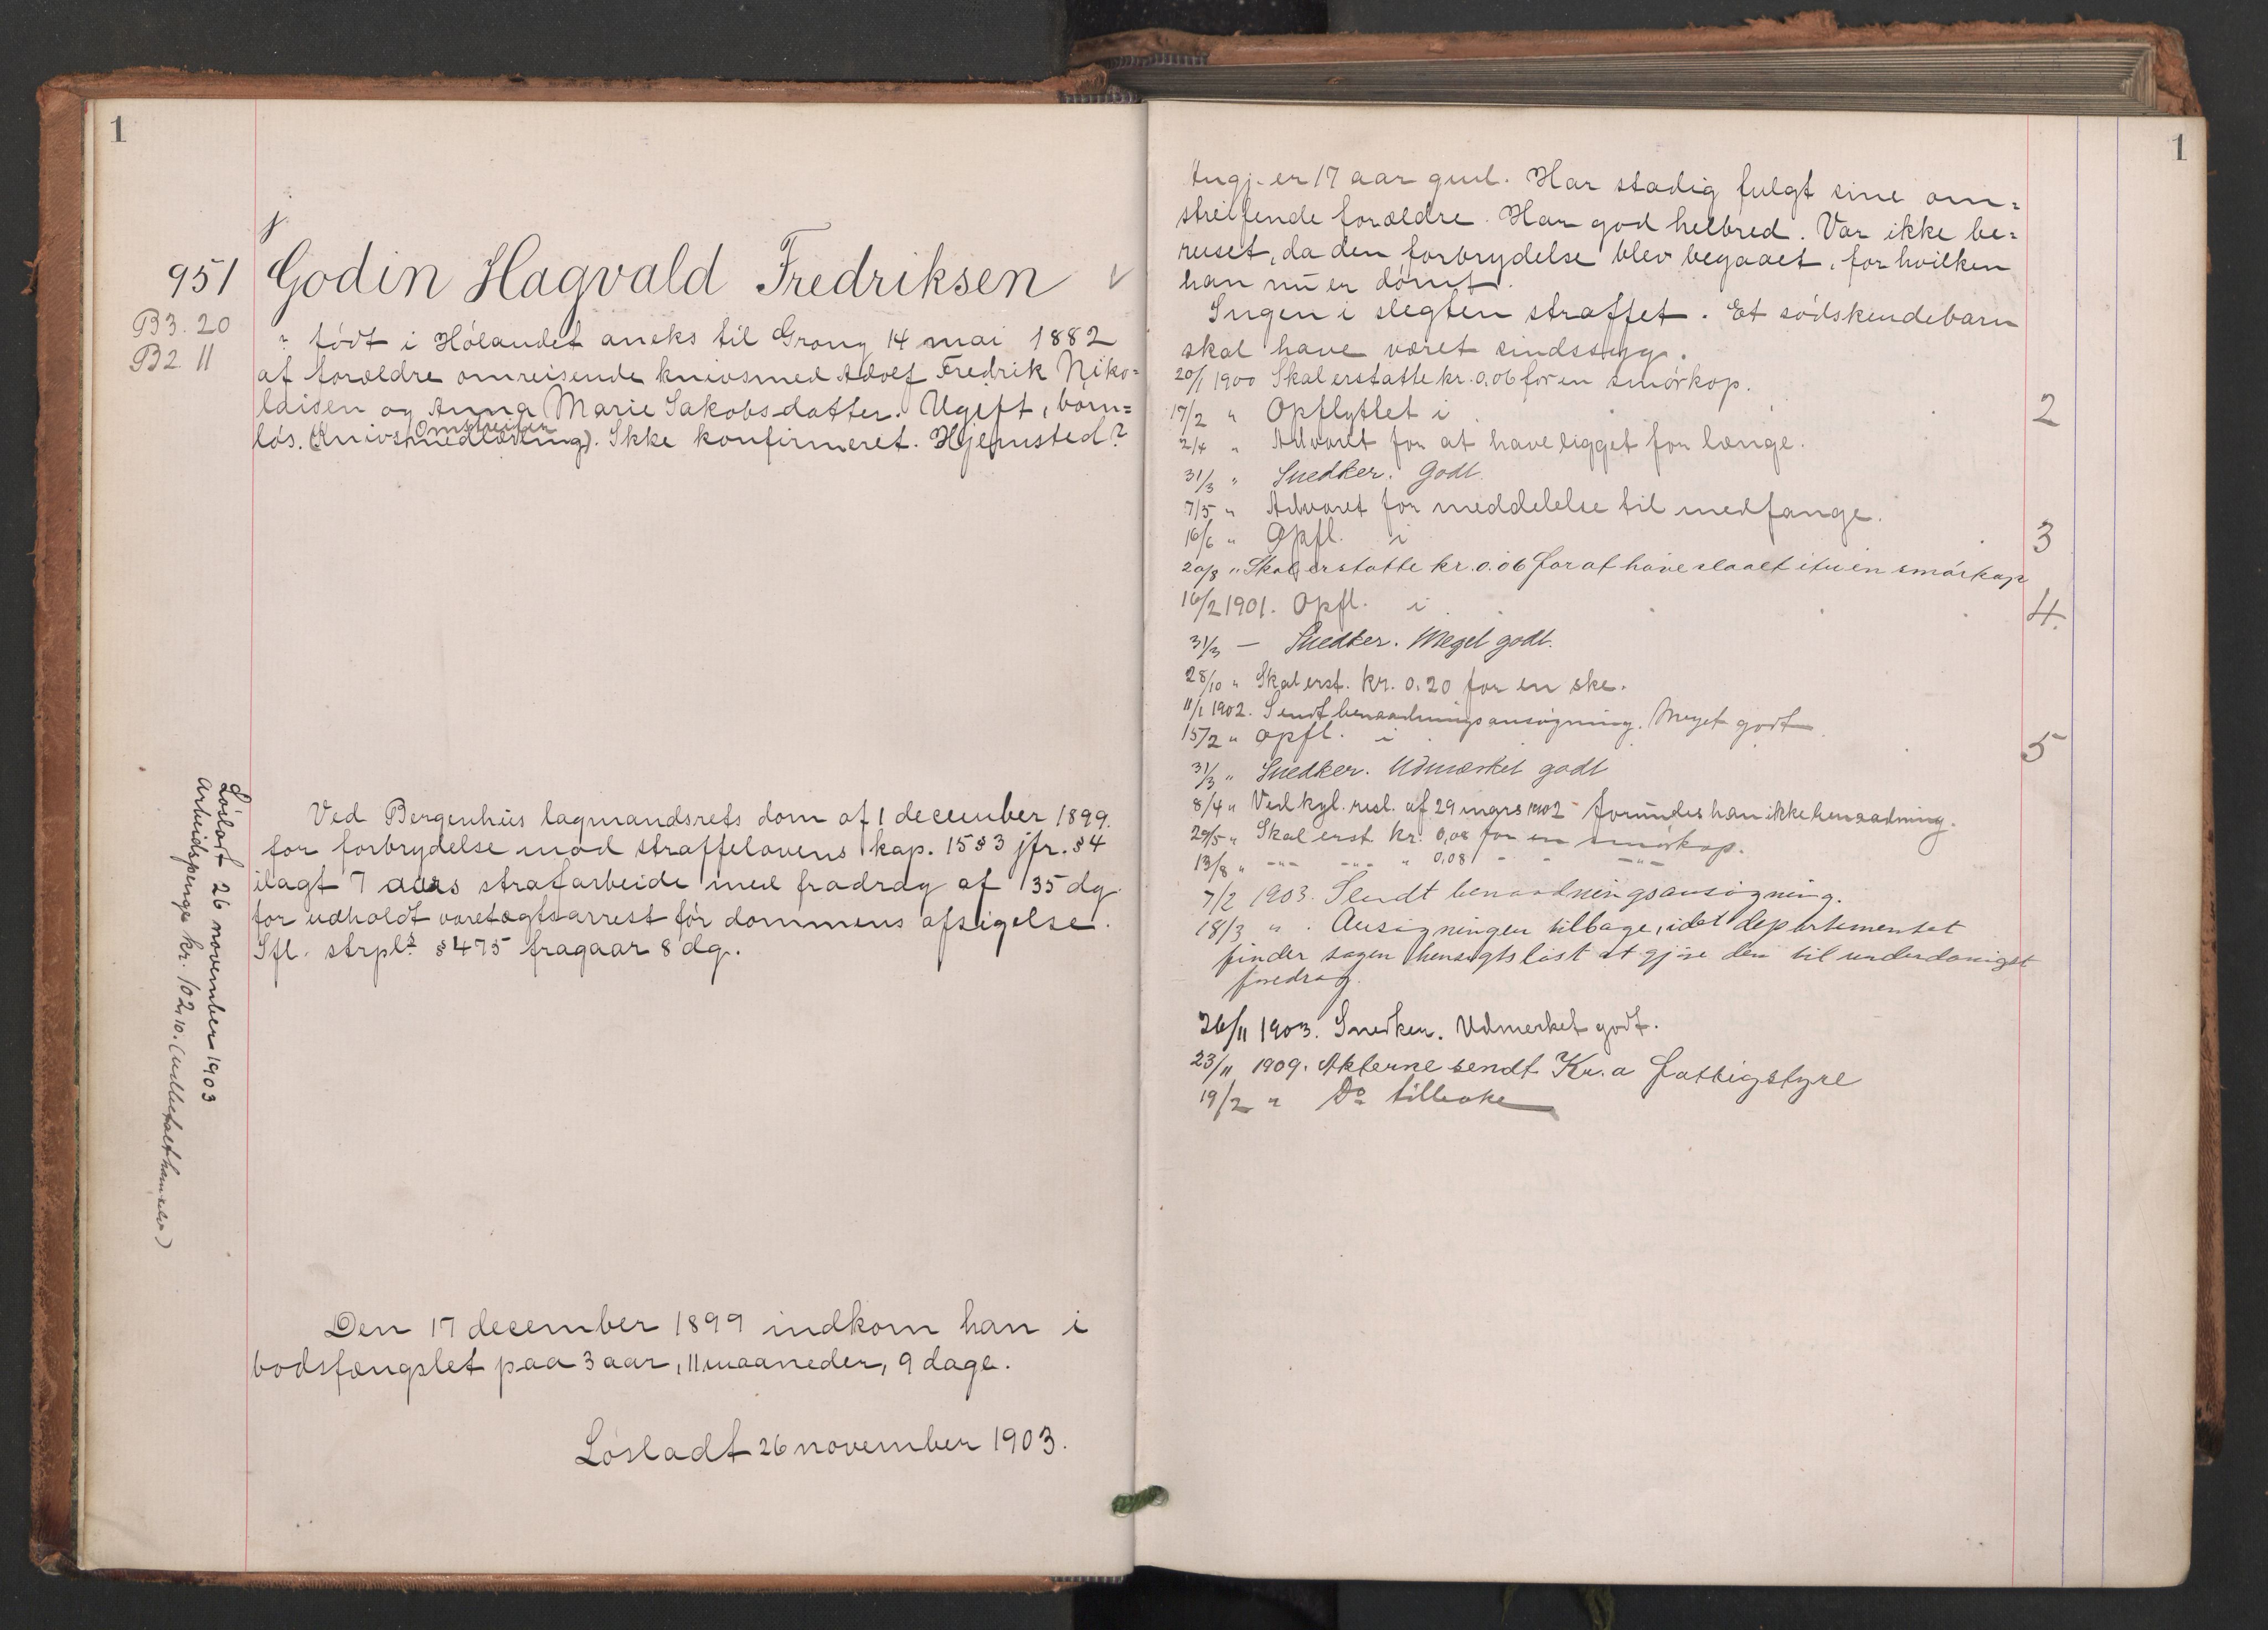 1
j.
951 Godin Hagvald Fredriksen
B3. 20
B2 11
født i Hølandet aneks til Grong 14 mai 1882
af forældre omreisende knivsmed Adolf Fredrik Niko=
laisen og Anna Marie Jakobsdatter. Ugift, barn=
Omstreifer
løs. (Knivsmedlærling). Ikke konfirmeret. Hjemsted?
Ved Bergenhus lagmandsrets dom af 1 december 1899
for forbrydelse mod straffelovens kap. 15 § 3 jfr. § 4
ilagt 7 aars strafarbeide med fradrag af 35 dg.
for udholdt varetægtsarrest før dommens afsigelse.
Ifl. strpl. § 475 fragaar 8 dg.
Løsladt 26 november 1903
Arbeidspenge kr. 102,10. (udbetalt ham selv)
Den 17 december 1899 indkom han i
bodsfængslet paa 3 aar, 11 maaneder, 9 dage.
Løsladt 26 november 1903.
1
Angj. er 17 aar gml. Har stadig fulgt sine om=
streifende forældre. Har god helbred. Var ikke be=
ruset, da den forbrydelse blev begaaet, for hvilken
han nu er dømt.
Ingen i slegten straffet. Et sødskendebarn
skal have været sindssyg.
20/1 1900 Skal erstatte kr. 0,06 for en smørkop.
17/2 " Opflyttet i 2
2/4 " Advaret for at have ligget for længe.
31/3 " Snedker. Godt.
7/5 " Advaret for meddelelse til medfange.
16/6 " Opfl. i 3
20/8 " Skal erstatte kr. 0.06 for at have slaaet itu en smørkop
16/2 1901. Opfl. i 4.
31/3 — Snedker. Meget godt.
28/10 " Skal erst. kr. 0.20 for en ske.
11/1 1902. Sendt benaadningsansøgning. Meget godt
15/2 " Opfl. i 5
31/3 " Snedker. Udmærket godt
8/4 " Ved kgl. resl. af 29 mars 1902 forundes han ikke benaadning.
29/5 " Skal erst. kr. 0,08 for en smørkop.
13/8 " -"- -"- " 0,08 - - -"-
7/2 1903. Sendt benaadningsansøgning.
18/3 " . Ansøgningen tilbage, idet departementet
finder sagen hensigtsløst at gjøre den til underdanigst
foredrag.
26/11 1903. Snedker. Udmerket godt.
23/11 1909. Akterne sendt Kr.a fattigstyre
19/2 " Do tilbake